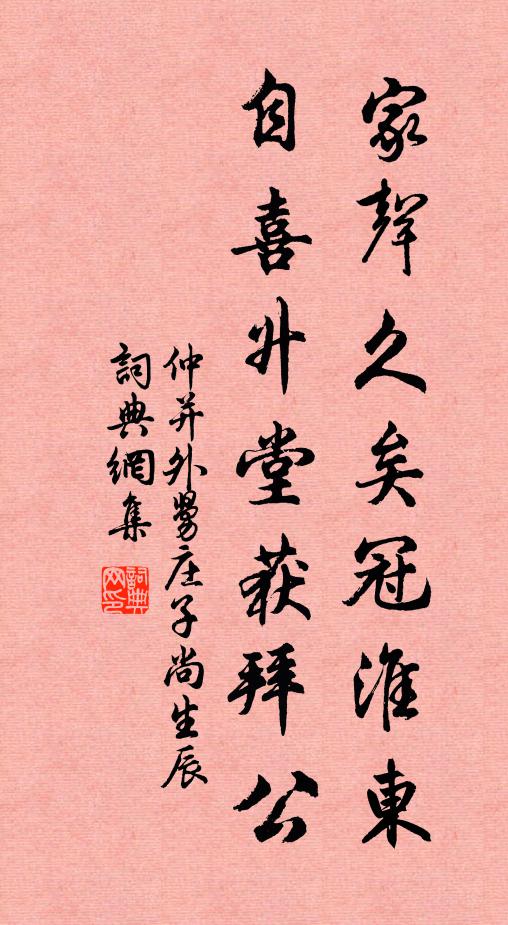 家聲久矣冠淮東
自喜升堂获拜公
仲并外舅庄子尚生辰
詞典網集
詞典网印